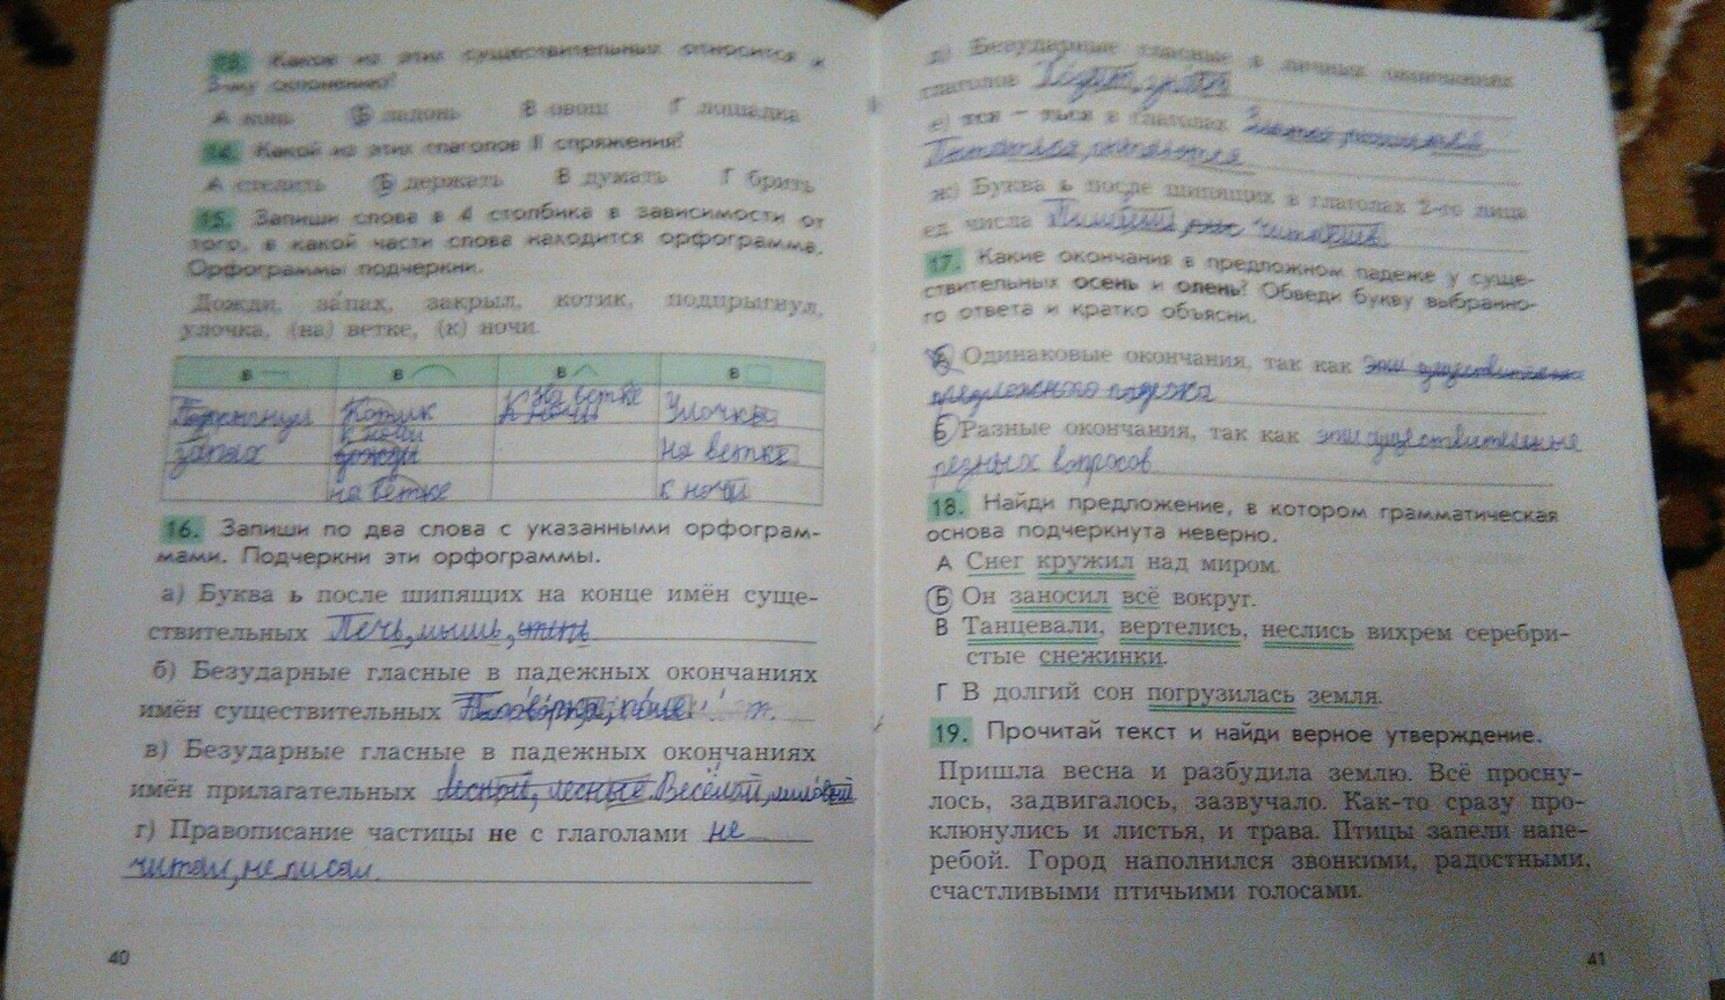 13. Какое из этих существительных относится к
3-му склонению?
А конь Б ладонь В овощ Г лошадка
14. Какой из этих глаголов II спряжения?
А стелить Б держать В думать Г брить
15. Запиши слова в 4 столбика в зависимости от
того, в какой части слова находится орфограмма.
Орфограммы подчеркни.
Дожди, за́пах, закрыл, котик, подпрыгнул,
улочка, (на) ветке, (к) ночи.
в в в в
На ветке
Котик к ночи Улочка
к ночи
запах дожди на ветке
на ветке к ночи
16. Запиши по два слова с указанными орфограм-
мами. Подчеркни эти орфограммы.
а) Буква ь после шипящих на конце имён суще-
ствительных Печь, мышь,
б) Безударные гласные в падежных окончаниях
имён существительных
в) Безударные гласные в падежных окончаниях
имён прилагательных лесной, лесные Весёлый,
г) Правописание частицы не с глаголами не
читал, не писал.
40
д) Безударные гласные в личных окончаниях
глаголов
е) тся – ться в глаголах
ж) Буква ь после шипящих в глаголах 2-го лица
ед. числа читаешь
17. Какие окончания в предложном падеже у суще-
ствительных осень и олень? Обведи букву выбранно-
го ответа и кратко объясни.
Одинаковые окончания, так как эти существительные
предложного падежа
Б Разные окончания, так как эти существительные
разных вопросов
18. Найди предложение, в котором грамматическая
основа подчеркнута неверно.
А Снег кружил над миром.
Б Он заносил всё вокруг.
В Танцевали, вертелись, неслись вихрем серебри-
стые снежинки.
Г В долгий сон погрузилась земля.
19. Прочитай текст и найди верное утверждение.
Пришла весна и разбудила землю. Всё просну-
лось, задвигалось, зазвучало. Как-то сразу про-
клюнулись и листья, и трава. Птицы запели напе-
ребой. Город наполнился звонкими, радостными,
счастливыми птичьими голосами.
41